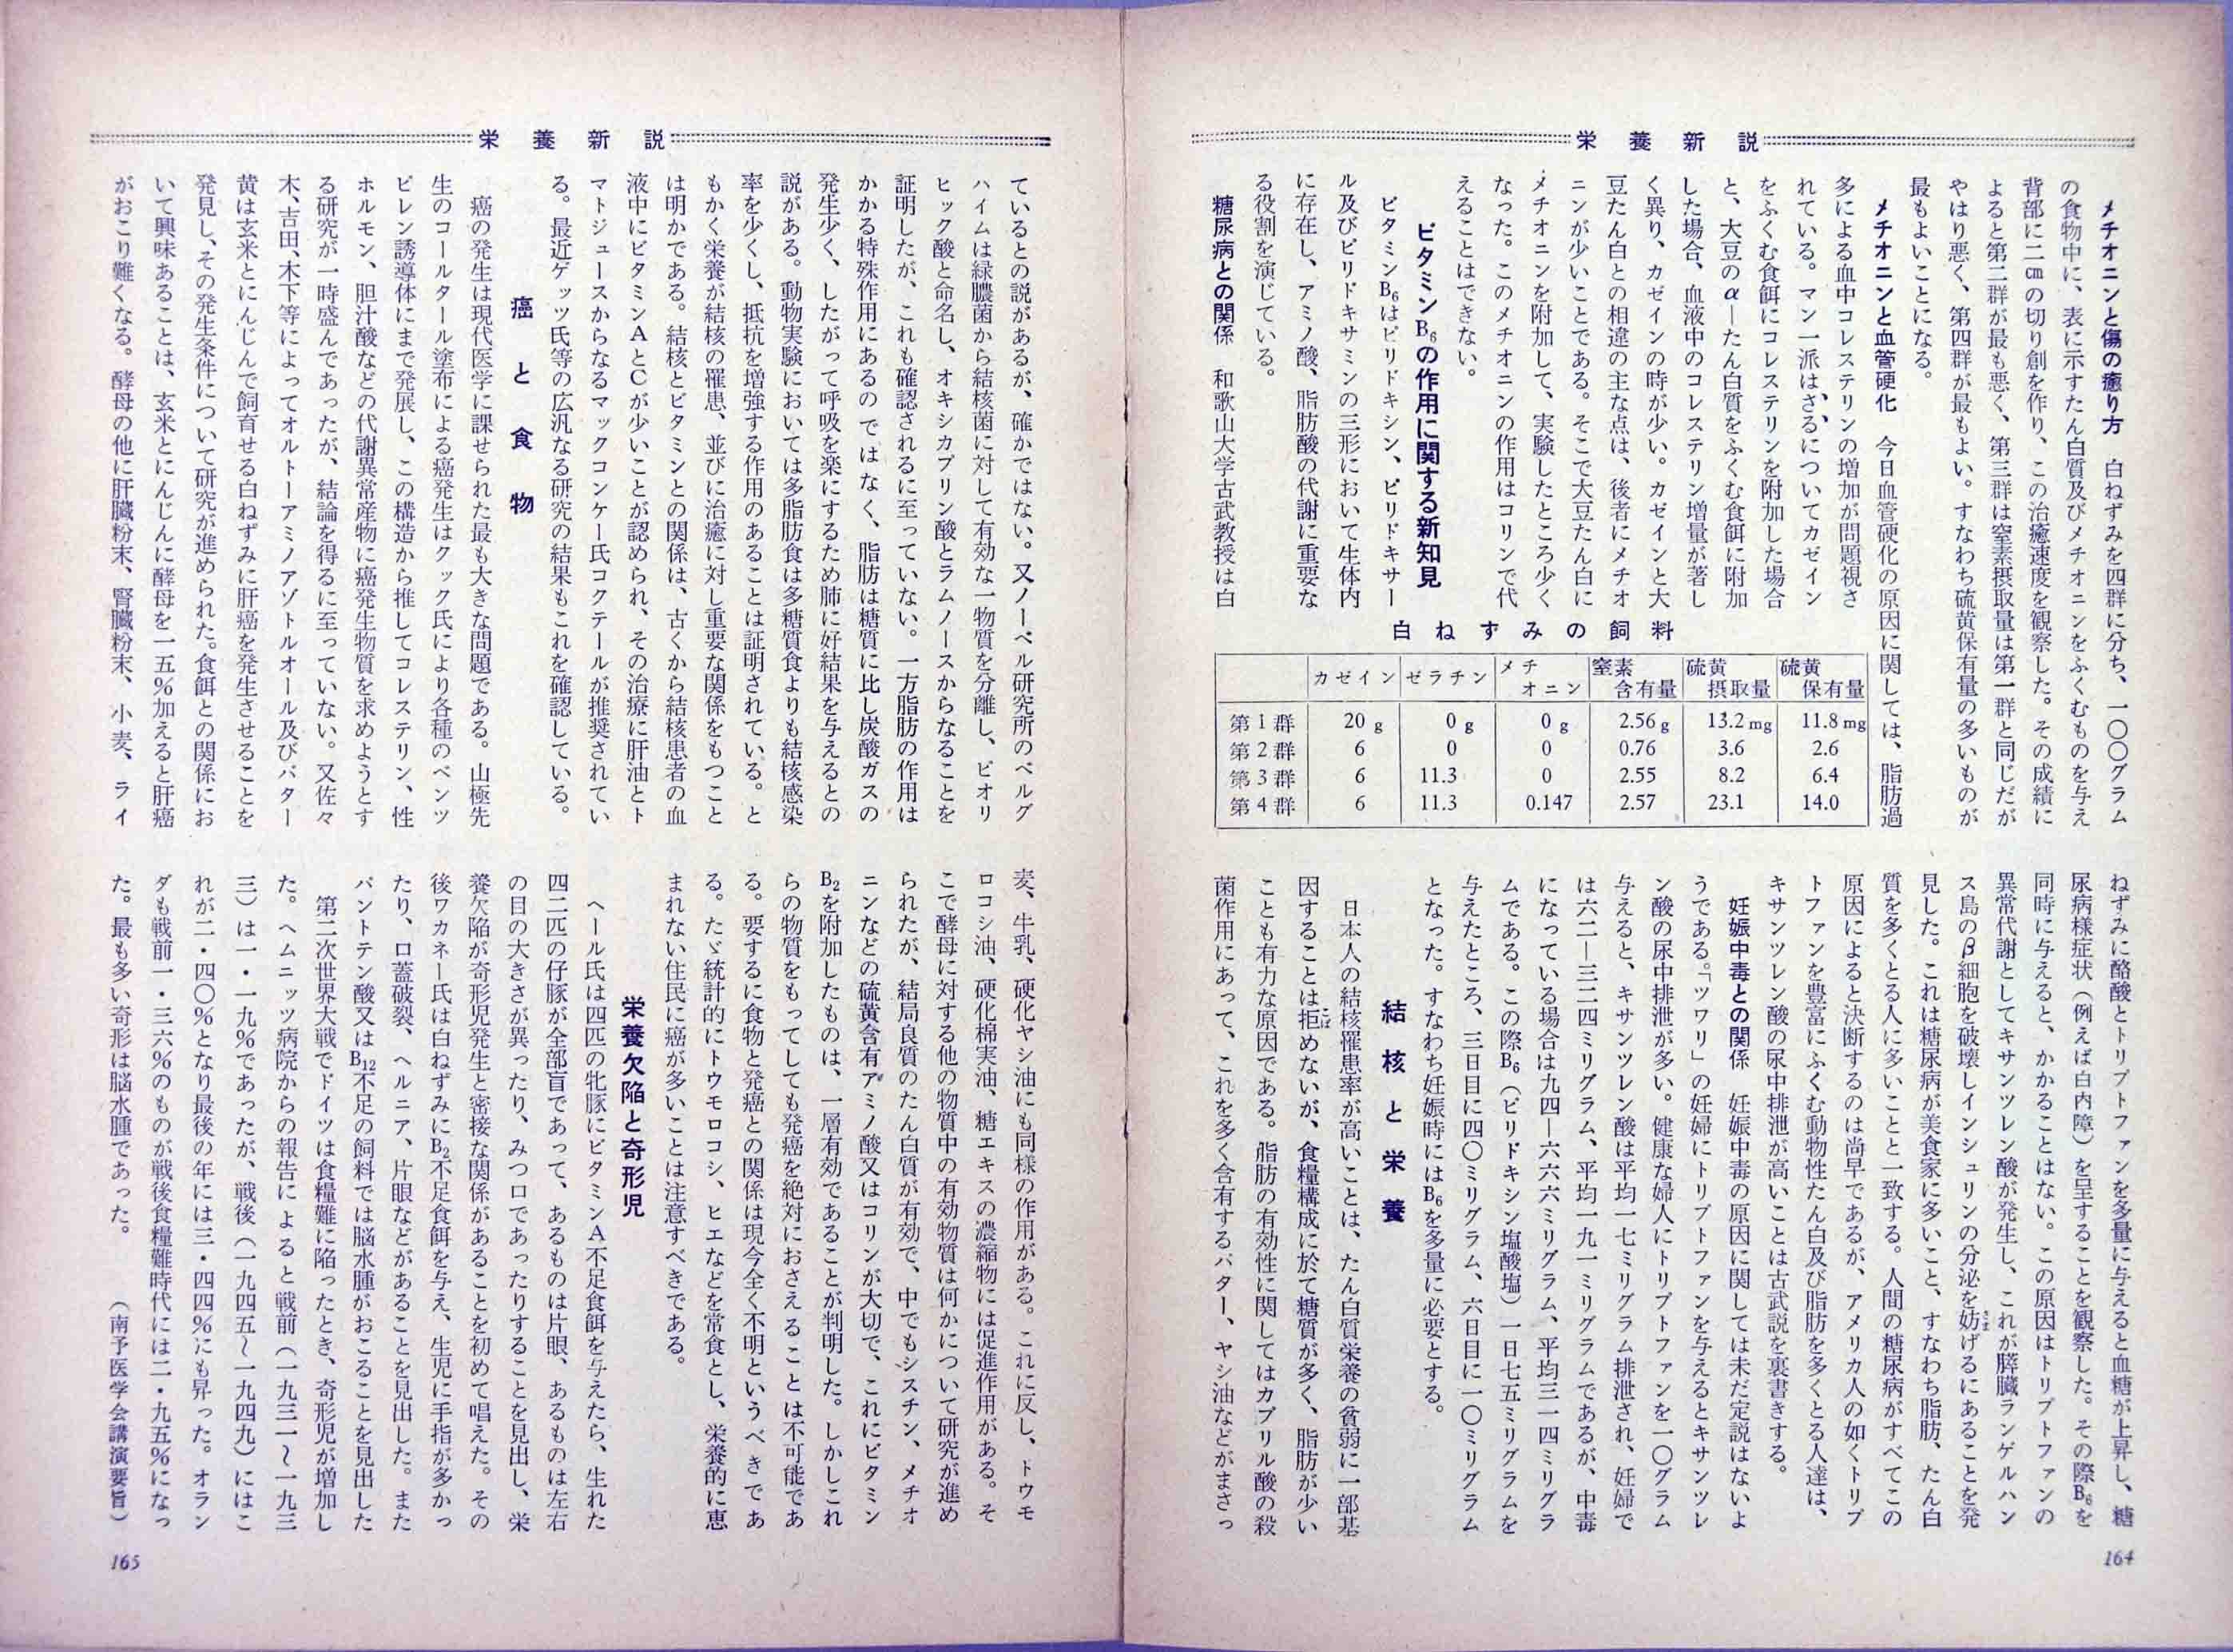 栄養新説
メチオニンと傷の癒り方　白ねずみを四群に分ち、一〇〇グラム
の食物中に、表に示すたん白質及びメチオニンをふくむものを与え
背部に二㎝の切り創を作り、この治癒速度を観察した。その成績に
よると第二群が最も悪く、第三群は窒素摂取量は第一群と同じだが
やはり悪く、第四群が最もよい。すなわち硫黄保有量の多いものが
最もよいことになる。
メチオニンと血管硬化　今日血管硬化の原因に関しては、脂肪過
多による血中コレステリンの増加が問題視さ
れている。マン一派はさるについてカゼイン
をふくむ食餌にコレステリンを附加した場合
と、大豆のαーたん白質をふくむ食餌に附加
した場合、血液中のコレステリン増量が著し
く異り、カゼインの時が少い。カゼインと大
豆たん白との相違の主な点は、後者にメチオ
ニンが少いことである。そこで大豆たん白に
メチオニンを附加して、実験したところ少く
なった。このメチオニンの作用はコリンで代
えることはできない。
ビタミンB₆の作用に関する新知見
ビタミンB₆はピリドキシン、ピリドキサー
ル及びピリドキサミンの三形において生体内
に存在し、アミノ酸、脂肪酸の代謝に重要な
る役割を演じている。
糖尿病との関係　和歌山大学古武教授は白
白ねずみの飼料
カゼイン ゼラチン メチオニン 窒素含有量 硫黄摂取量 硫黄保有量
第1群 20g 0g 0g 2.56g 13.2mg 11.8mg
第2群 6 0 0 0.76 3.6 2.6
第3群 6 11.3 0 2.55 8.2 6.4
第4群 6 11.3 0.147 2.57 23.1 14.0
ねずみに酪酸とトリプトファンを多量に与えると血糖が上昇し、糖
尿病様症状（例えば白内障）を呈することを観察した。その際B₆を
同時に与えると、かかることはない。この原因はトリプトファンの
異常代謝としてキサンツレン酸が発生し、これが膵臓ランゲルハン
ス島のβ細胞を破壊しインシュリンの分泌を妨げるにあることを発
見した。これは糖尿病が美食家に多いこと、すなわち脂肪、たん白
質を多くとる人に多いことと一致する。人間の糖尿病がすべてこの
原因によると決断するのは尚早であるが、アメリカ人の如くトリプ
トファンを豊富にふくむ動物性たん白及び脂肪を多くとる人達は、
キサンツレン酸の尿中排泄が高いことは古武説を裏書きする。
妊娠中毒との関係　妊娠中毒の原因に関しては未だ定説はないよ
うである。「ツワリ」の妊婦にトリプトファンを与えるとキサンツレ
ン酸の尿中排泄が多い。健康な婦人にトリプトファンを一〇グラム
与えると、キサンツレン酸は平均一七ミリグラム排泄され、妊婦で
は六二ー三二四ミリグラム、平均一九一ミリグラムであるが、中毒
になっている場合は九四ー六六六ミリグラム、平均三一四ミリグラ
ムである。この際B₆（ピリドキシン塩酸塩）一日七五ミリグラムを
与えたところ、三日目に四〇ミリグラム、六日目に一〇ミリグラム
となった。すなわち妊娠時にはB₆を多量に必要とする。
結核と栄養
日本人の結核罹患率が高いことは、たん白質栄養の貧弱に一部基
因することは拒めないが、食糧構成に於て糖質が多く、脂肪が少い
ことも有力な原因である。脂肪の有効性に関してはカプリル酸の殺
菌作用にあって、これを多く含有するバター、ヤシ油などがまさっ
164
栄養新説
ているとの説があるが、確かではない。又ノーベル研究所のベルグ
ハイムは緑膿菌から結核菌に対して有効な一物質を分離し、ピオリ
ヒック酸と命名し、オキシカプリン酸とラムノースからなることを
証明したが、これも確認されるに至っていない。一方脂肪の作用は
かかる特殊作用にあるのではなく、脂肪は糖質に比し炭酸ガスの
発生少く、したがって呼吸を楽にするため肺に好結果を与えるとの
説がある。動物実験においては多脂肪食は多糖質食よりも結核感染
率を少くし、抵抗を増強する作用のあることは証明されている。と
もかく栄養が結核の罹患、並びに治癒に対し重要な関係をもつこと
は明かである。結核とビタミンとの関係は、古くから結核患者の血
液中にビタミンAとCが少いことが認められ、その治療に肝油とト
マトジュースからなるマックコンケー氏コクテールが推奨されてい
る。最近ゲッツ氏等の広汎なる研究の結果もこれを確認している。
癌と食物
癌の発生は現代医学に課せられた最も大きな問題である。山極先
生のコールタール塗布による癌発生はクック氏により各種のベンツ
ピレン誘導体にまで発展し、この構造から推してコレステリン、性
ホルモン、胆汁酸などの代謝異常産物に癌発生物質を求めようとす
る研究が一時盛んであったが、結論を得るに至っていない。又佐々
木、吉田、木下等によってオルトーアミノアゾトルオール及びバター
黄は玄米とにんじんで飼育せる白ねずみに肝癌を発生させることを
発見し、その発生条件について研究が進められた。食餌との関係にお
いて興味あることは、玄米とにんじんに酵母を一五％加えると肝癌
がおこり難くなる。酵母の他に肝臓粉末、腎臓粉末、小麦、ライ
麦、牛乳、硬化ヤシ油にも同様の作用がある。これに反し、トウモ
ロコシ油、硬化棉実油、糖エキスの濃縮物には促進作用がある。そ
こで酵母に対する他の物質中の有効物質は何かについて研究が進め
られたが、結局良質のたん白質が有効で、中でもシスチン、メチオ
ニンなどの硫黄含有アミノ酸又はコリンが大切で、これにビタミン
B₂を附加したものは、一層有効であることが判明した。しかしこれ
らの物質をもってしても発癌を絶対におさえることは不可能であ
る。要するに食物と発癌との関係は現今全く不明というべきであ
る。たゞ統計的にトウモロコシ、ヒエなどを常食とし、栄養的に恵
まれない住民に癌が多いことは注意すべきである。
栄養欠陥と奇形児
ヘール氏は四匹の牝豚にビタミンA不足食餌を与えたら、生れた
四二匹の仔豚が全部盲であって、あるものは片眼、あるものは左右
の目の大きさが異ったり、みつ口であったりすることを見出し、栄
養欠陥が奇形児発生と密接な関係があることを初めて唱えた。その
後ワカネー氏は白ねずみにB₂不足食餌を与え、生児に手指が多かっ
たり、口蓋破裂、ヘルニア、片眼などがあることを見出した。また
パントテン酸又はB₁₂不足の飼料では脳水腫がおこることを見出した
第二次世界大戦でドイツは食糧難に陥ったとき、奇形児が増加し
た。ヘムニッツ病院からの報告によると戦前（一九三一〜一九三
三）は一・一九％であったが、戦後（一九四五〜一九四九）にはこ
れが二・四〇％となり最後の年には三・四四％にも昇った。オラン
ダも戦前一・三六％のものが戦後食糧難時代には二・九五％になっ
た。最も多い奇形は脳水腫であった。　（南予医学会講演要旨）
165